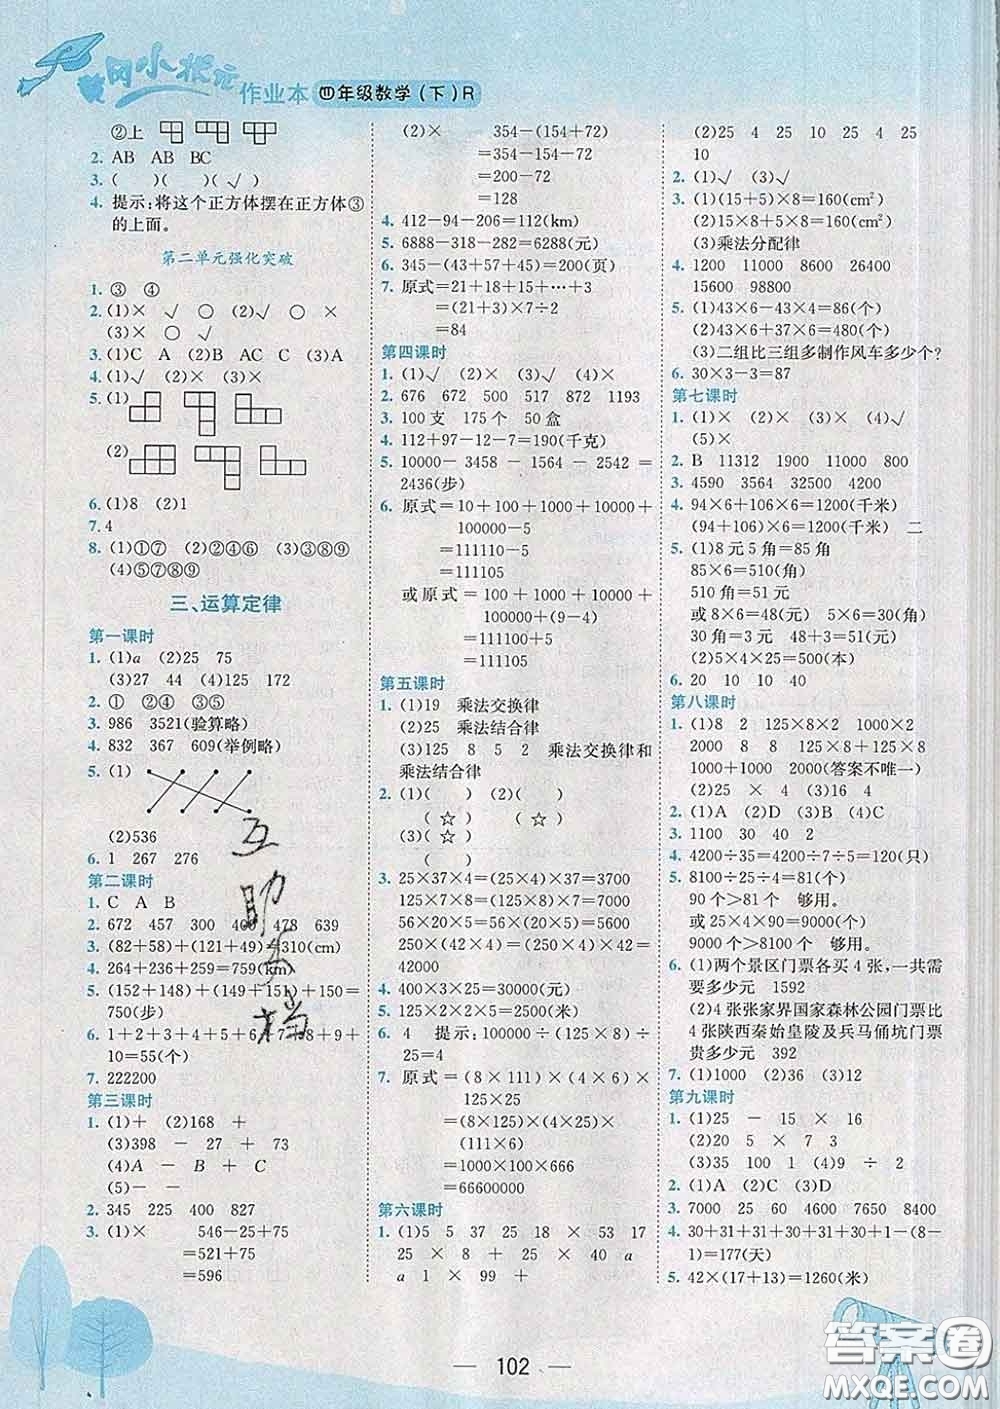 黄冈小状元
作业本 四年级数学(下)R
②上
2. AB AB BC
3. ( ) ( )( √ )
4. 提示:将这个正方体摆在正方体③
的上面。
第二单元强化突破
1. ③ ④
2. (1)× √ ○ (2)√ ○ ×
(3)× ○ √
3. (1)C A (2)B A C (3)A
4. (1)√ (2)× (3)× (4)√
5. (1)
(2)
6. (1)8 (2)1
7. 4
8. (1)①⑦ (2)②④⑥ (3)③⑧⑨
(4)⑤⑦⑧⑨
三、运算定律
第一课时
1. (1)a (2)25 75
(3)27 44 (4)125 172
2. ① ②④ ③⑤
3. 986 3521(验算略)
4. 832 367 609(举例略)
5. (1)
(2)536
6. 1 267 276
第二课时
1. C A B
2. 672 457 300 400 478 639
3. (82+58)+(121+49)=310(cm)
4. 264+236+259=759(km)
5. (152+148)+(149+151)+150=
750(步)
6. 1+2+3+4+5+6+7+8+9+
10=55(个)
7. 222200
第三课时
1. (1)+ (2)168 +
(3)398 - 27 + 73
(4)A - B + C
(5)- -
2. 345 225 400 827
3. (1)× 546-25+75
=521+75
=596
(2)× 354-(154+72)
=354-154-72
=200-72
=128
4. 412-94-206=112(km)
5. 6888-318-282=6288(元)
6. 345-(43+57+45)=200(页)
7. 原式=21+18+15+…+3
=(21+3)×7÷2
=84
第四课时
1. (1)√ (2)× (3)√ (4)×
2. 676 672 500 517 872 1193
3. 100支 175个 50盒
4. 112+97-12-7=190(千克)
5. 10000-3458-1564-2542=
2436(步)
6. 原式=10+100+1000+10000+
100000-5
=111110-5
=111105
或原式=100+1000+10000+
100000+(9-4)
=111100+5
=111105
第五课时
1. (1)19 乘法交换律
(2)25 乘法结合律
(3)125 8 5 2 乘法交换律和
乘法结合律
2. (1)( ) (2)( )
( ☆ ) ( ☆ )
(3)( ☆ )
( )
3. 25×37×4=(25×4)×37=3700
125×7×8=(125×8)×7=7000
56×20×5=56×(20×5)=5600
250×(42×4)=(250×4)×42=
42000
4. 400×3×25=30000(元)
5. 125×2×2×5=2500(米)
6. 4 提示:100000÷(125×8)÷
25=4
7. 原式=(8×111)×(4×6)×
125×25
=(8×125)×(4×25)×
(111×6)
=1000×100×666
=66600000
第六课时
1. (1)5 5 37 25 18 × 53 17
25 × 8 + 25 × 40 a
a 1 × 99 +
(2)25 4 25 10 25 4 25
10
2. (1)√ (2)× (3)√
3. (1)(15+5)×8=160(cm²)
(2)15×8+5×8=160(cm²)
(3)乘法分配律
4. 1200 11000 8600 26400
15600 98800
5. (1)43×6-43×4=86(个)
(2)43×6+37×6=480(个)
(3)二组比三组多制作风车多少个?
6. 30×3-3=87
第七课时
1. (1)× (2)× (3)× (4)√
(5)×
2. B 11312 1900 11000 800
3. 4590 3564 32500 4200
4. 94×6+106×6=1200(千米)
(94+106)×6=1200(千米) 二
5. (1)8元5角=85角
85×6=510(角)
510角=51元
或8×6=48(元) 5×6=30(角)
30角=3元 48+3=51(元)
(2)5×4×25=500(本)
6. 20 10 10 40
第八课时
1. (1)8 2 125×8×2 1000×2
2000 8 8 125×8+125×8
1000+1000 2000(答案不唯一)
(2)25 × 4 (3)16 4
2. (1)A (2)D (3)B (4)C
3. 1100 30 40 8
4. 4200÷35=4200÷7÷5=120(只)
5. 8100÷25÷4=81(个)
90个>81个 够用。
或25×4×90=9000(个)
9000个>8100个 够用。
6. (1)两个景区门票各买4张,一共需
要多少元 1592
(2)4张张家界国家森林公园门票比
4张陕西秦始皇陵及兵马俑坑门票
贵多少元 392
7. (1)1000 (2)36 (3)12
第九课时
1. (1)25 - 15 × 16
(2)20 5 × 7 3
(3)35 100 (4)9 ÷ 2
2. (1)A (2)C (3)D
3. 7000 25 60 8 7650 8400
4. 30+31+31+30+31+30-(8-
1)=177(天)
5. 42×(17+13)=1260(米)
互
助
文
档
102
答案圈
MXQE.COM